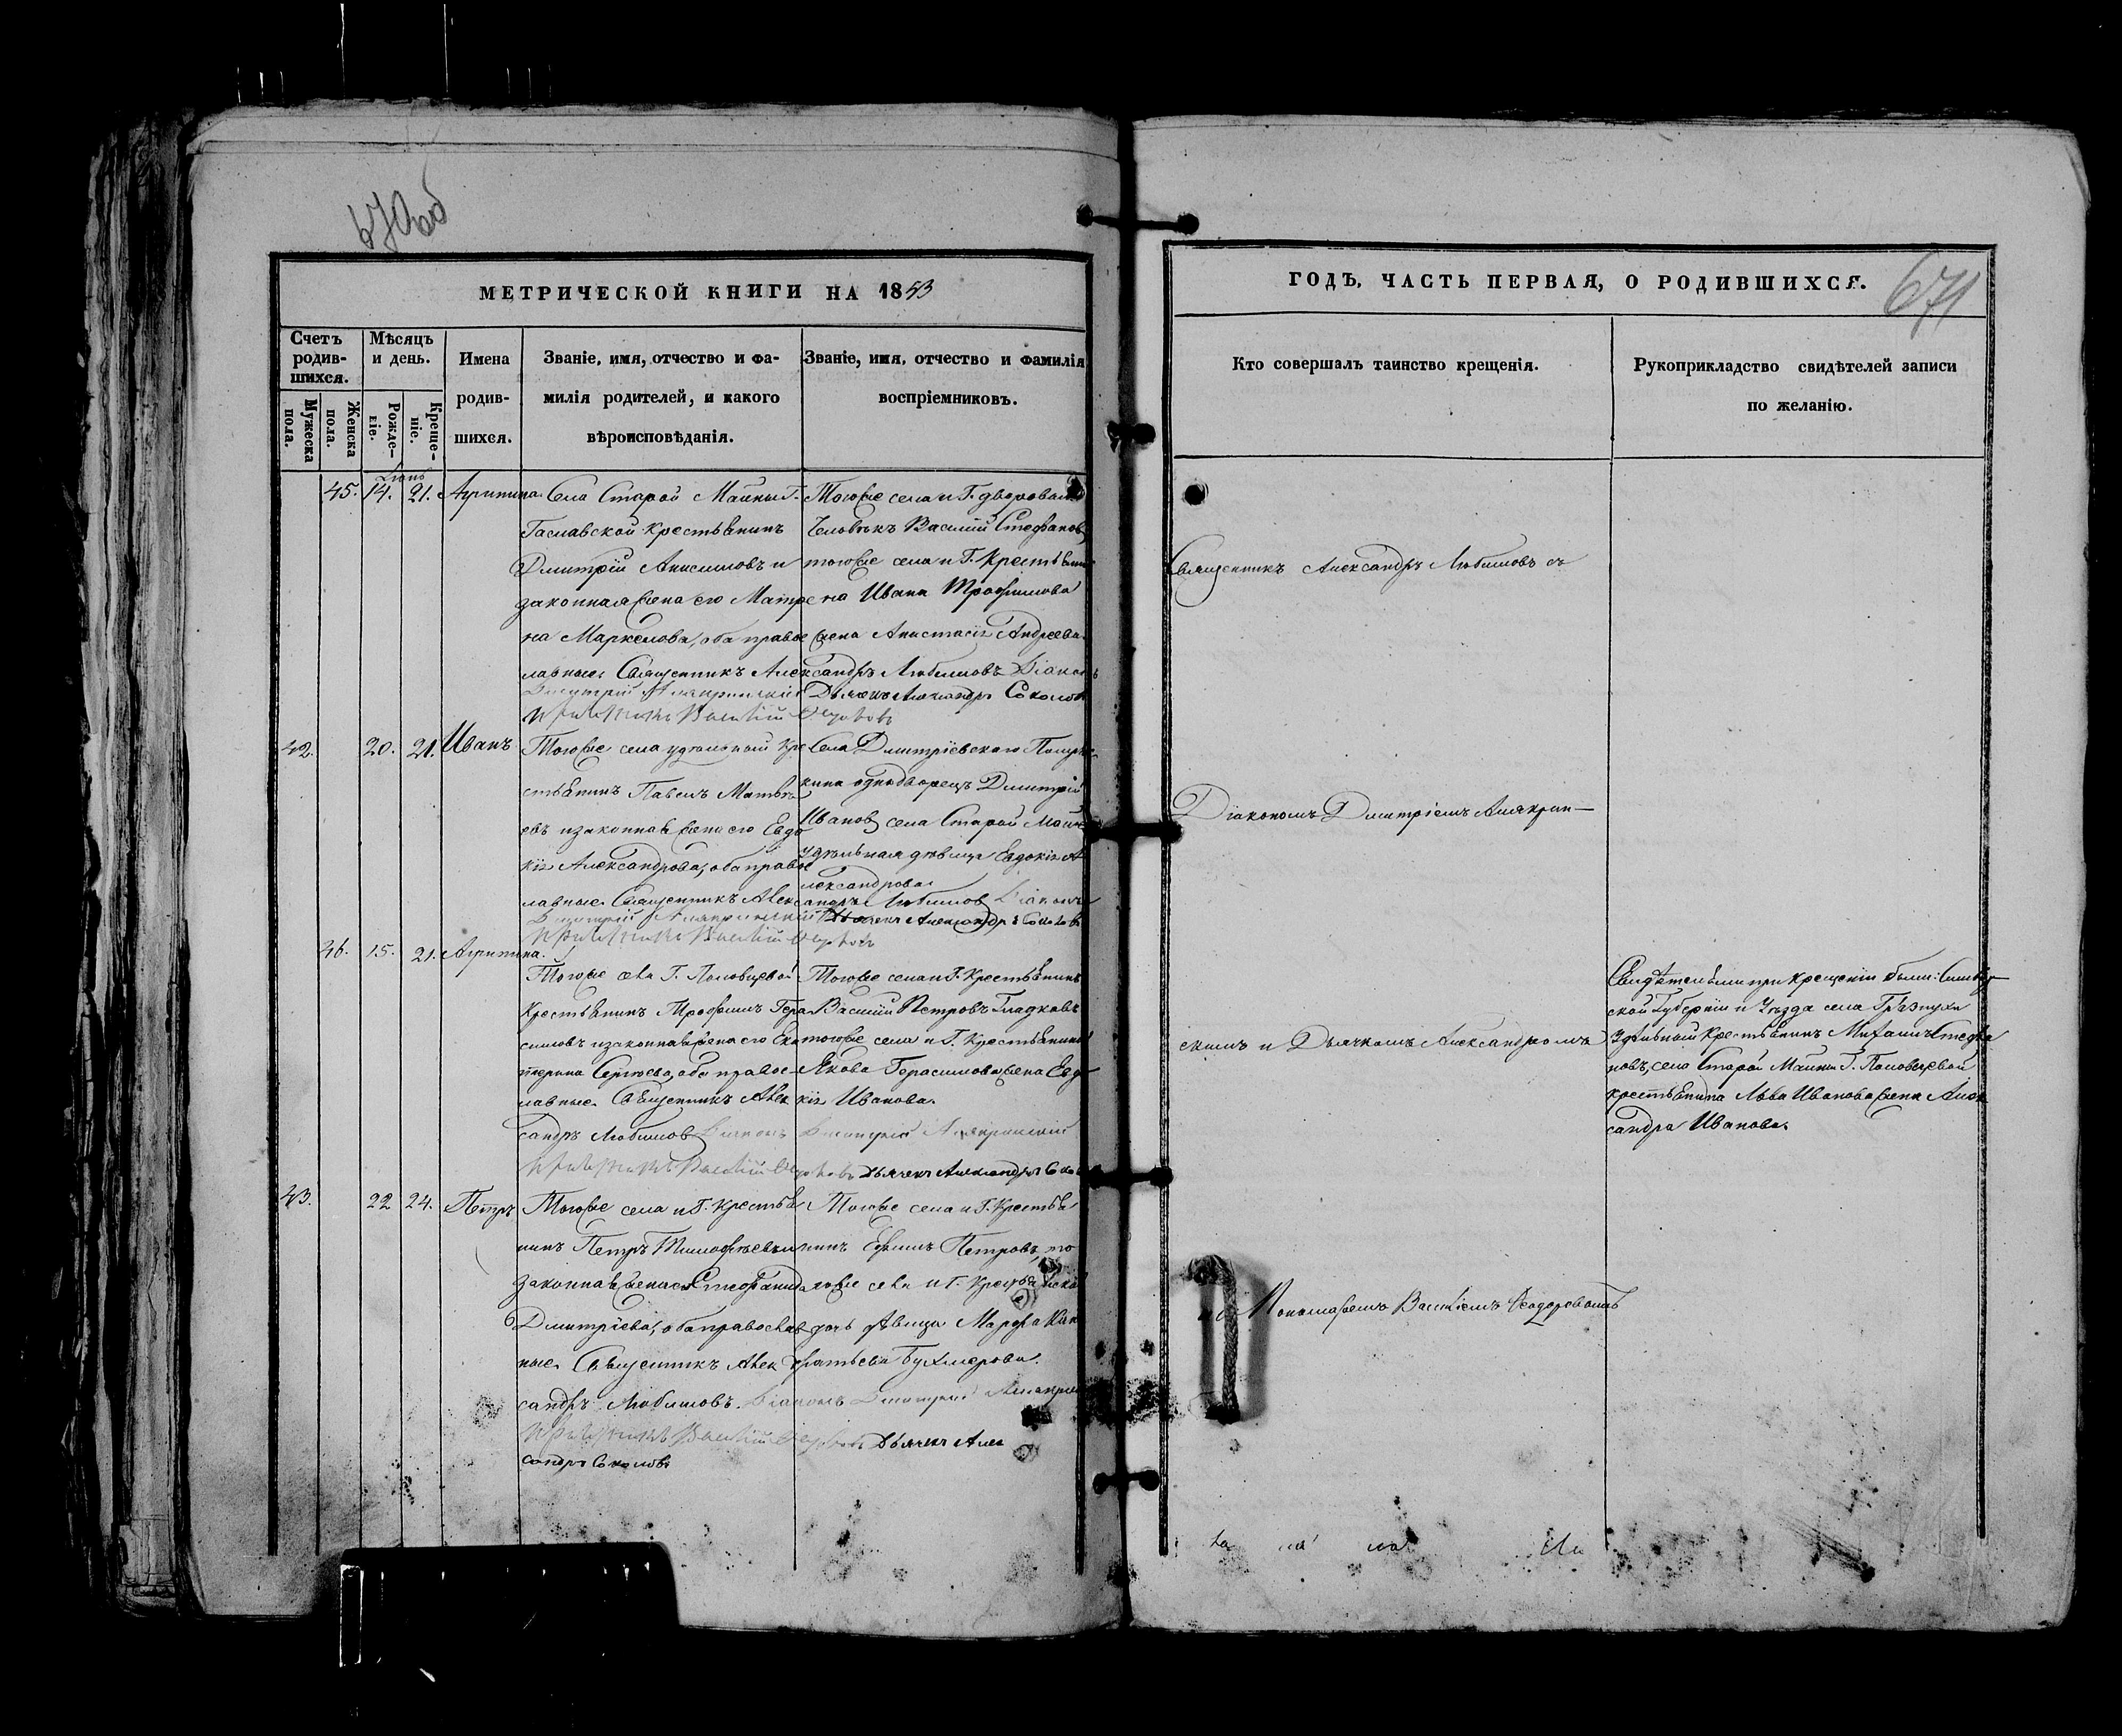 670 об
МЕТРИЧЕСКОЙ КНИГИ НА 1853
Счетъ родив-шихся.
Мужеска пола.
Женска пола.
Мѣсяцъ и день.
Рожде-ніе.
Креще-ніе.
Имена родив-шихся.
Званіе, имя, отчество и фа-
милія родителей, и какого
вѣроисповѣданія.
Званіе, имя, отчество и фамилія
воспріемниковъ.
45. 14. 21. Агрипина.
Села Старой Майны Г.
крестьянинъ
Димитрій Анисимовъ и
законная жена его Матре
на Маркелова, оба правос
лавные. Священникъ Александръ Любимовъ Діаконъ
Дьячекъ Александръ Соколовъ
Тогоже села и Г. дворовый
человѣкъ Василій Стефановъ
тогоже села и Г. крестьяни
на Ивана Трофимова
жена Анастасія Андреева
42. 20. 21. Иванъ
Тогоже села удѣльный кре
стьянинъ Павелъ Матвѣ
евъ и законная жена его Евдо
кія Александрова, оба правос
лавные. Священникъ Александръ Любимовъ Діаконъ
Дьячекъ Александръ Соколовъ
Села Дмитріевскаго
однодворецъ Димитрій
Ивановъ села Старой Майны
удѣльная дѣвица Евдокія А
лександрова
46. 15. 21. Агрипина.
Тогоже села Г. Половцевой
крестьянинъ Трофимъ Гера
симовъ и законная жена его Ека
терина Сергѣева, оба правос
лавные. Священникъ Алек
сандръ Любимовъ Діаконъ
Дьячекъ Александръ Соколовъ
Тогоже села и Г. крестьянинъ
Василій Петровъ Гладковъ
тогоже села и Г. крестьянина
Якова Герасимова жена Евдо
кія Иванова.
43. 22 24. Петръ
Тогоже села и Г. крестья
нинъ Петръ Тимофѣевъ и
законная жена его Степанида
Дмитріева, оба православ
ные. Священникъ Алек
сандръ Любимовъ. Діаконъ
Дьячекъ Алек
сандръ Соколовъ
Тогоже села и Г. крестья
нинъ Ефимъ Петровъ, то
гоже села и Г. крестьянска
дочь дѣвица Марфа Кон
дратьева
671
ГОДЪ, ЧАСТЬ ПЕРВАЯ, О РОДИВШИХСЯ.
Кто совершалъ таинство крещенія.
Рукоприкладство свидѣтелей записи
по желанію.
Священникъ Александръ Любимовъ съ
Діакономъ Дмитріемъ Алякрин-
скимъ и Дьячкомъ Александромъ
Пономаремъ Василіемъ Феодоровымъ
Свидѣтельми при крещеніи были: Симбир
ской Губерніи и Уѣзда села
Удѣльный крестьянинъ Михаилъ Стефа
новъ, села Старой Майны Г. Половцевой
крестьянина Льва Иванова жена Алек
сандра Иванова.